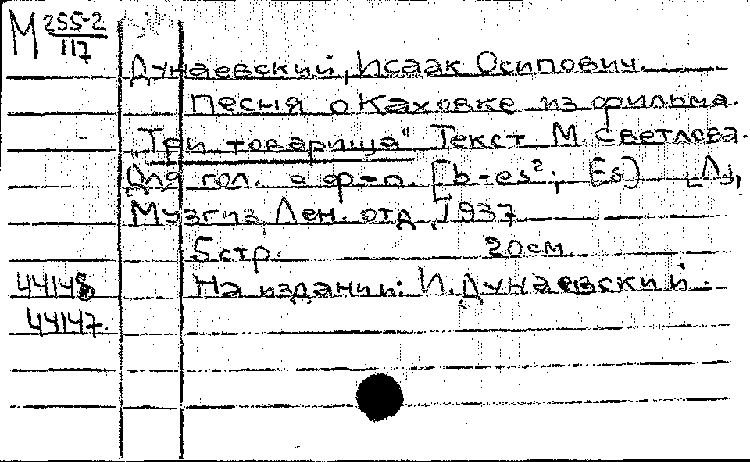 М 255-2
117
Дунаевский, Исаак Осипович.
Песня о Каховке из фильма
"Три товарища" Текст М. Светлова.
Для гол. с ф-п. [b-es²; Es] Л.,
Музгиз, Лен. отд., 1937
5 стр. 20 см.
44148 На издании: И. Дунаевский.
44147.